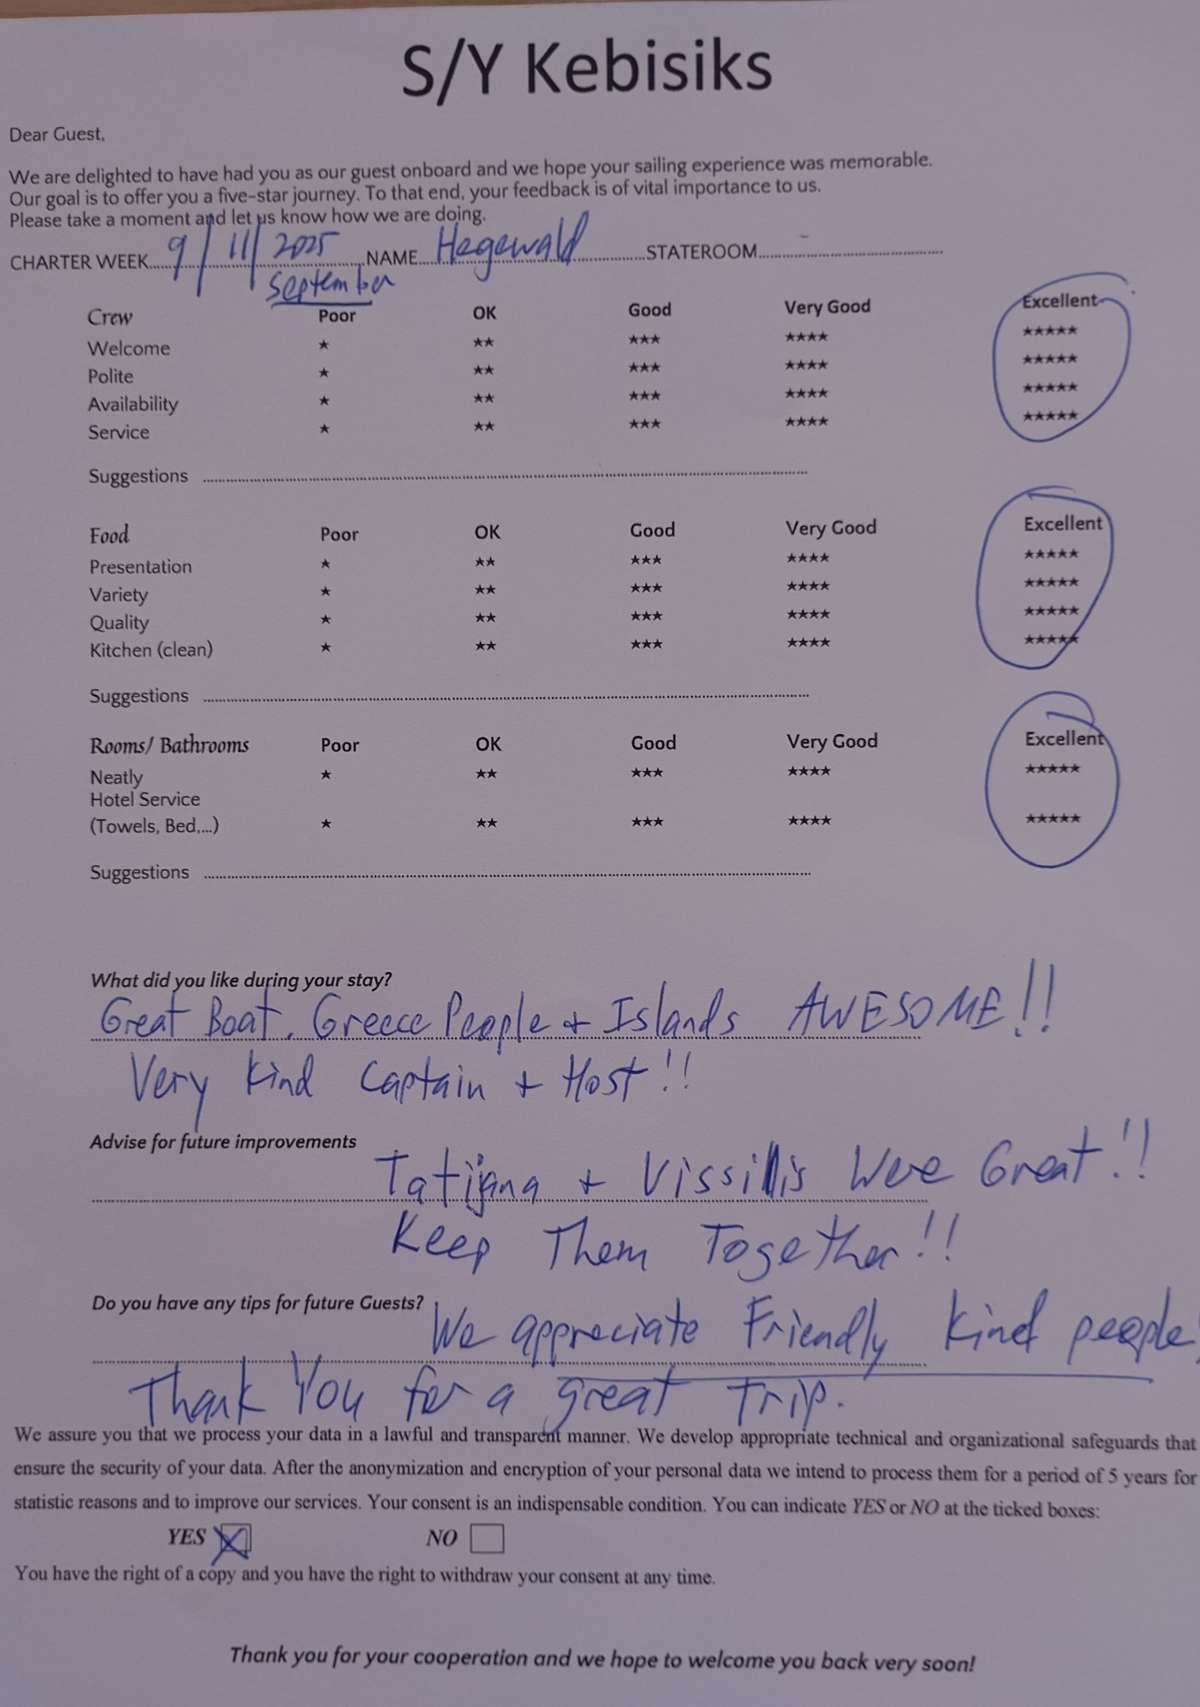 S/Y Kebisiks
Dear Guest,
We are delighted to have had you as our guest onboard and we hope your sailing experience was memorable.
Our goal is to offer you a five-star journey. To that end, your feedback is of vital importance to us.
Please take a moment and let us know how we are doing.
CHARTER WEEK 9/11/2025 NAME Hegewald STATEROOM
September
Crew Poor OK Good Very Good Excellent
Welcome ★ ★★ ★★★ ★★★★ ★★★★★
Polite ★ ★★ ★★★ ★★★★ ★★★★★
Availability ★ ★★ ★★★ ★★★★ ★★★★★
Service ★ ★★ ★★★ ★★★★ ★★★★★
Suggestions
Food Poor OK Good Very Good Excellent
Presentation ★ ★★ ★★★ ★★★★ ★★★★★
Variety ★ ★★ ★★★ ★★★★ ★★★★★
Quality ★ ★★ ★★★ ★★★★ ★★★★★
Kitchen (clean) ★ ★★ ★★★ ★★★★ ★★★★★
Suggestions
Rooms/ Bathrooms Poor OK Good Very Good Excellent
Neatly ★ ★★ ★★★ ★★★★ ★★★★★
Hotel Service
(Towels, Bed,...) ★ ★★ ★★★ ★★★★ ★★★★★
Suggestions
What did you like during your stay?
Great Boat, Greece People + Islands AWESOME!!
Very Kind Captain + Host!!
Advise for future improvements
Tatijana + Vissillis Were Great!!
Keep Them Together!!
Do you have any tips for future Guests?
We appreciate Friendly Kind people!
Thank You for a great Trip.
We assure you that we process your data in a lawful and transparent manner. We develop appropriate technical and organizational safeguards that
ensure the security of your data. After the anonymization and encryption of your personal data we intend to process them for a period of 5 years for
statistic reasons and to improve our services. Your consent is an indispensable condition. You can indicate YES or NO at the ticked boxes:
YES X NO
You have the right of a copy and you have the right to withdraw your consent at any time.
Thank you for your cooperation and we hope to welcome you back very soon!